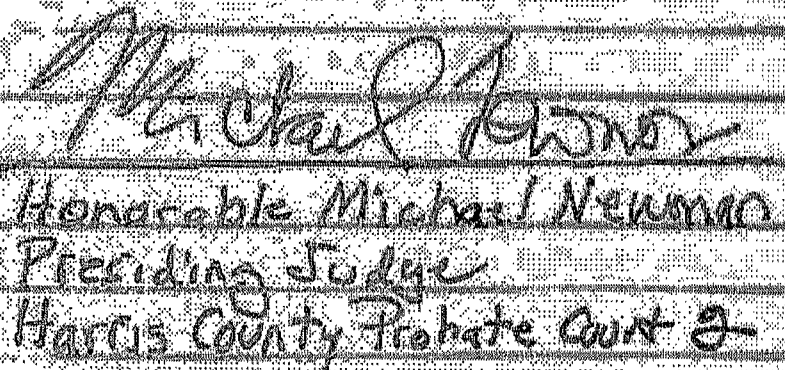 Michael Newman
Honorable Michael Newman
Presiding Judge
Harris County Probate Court 2